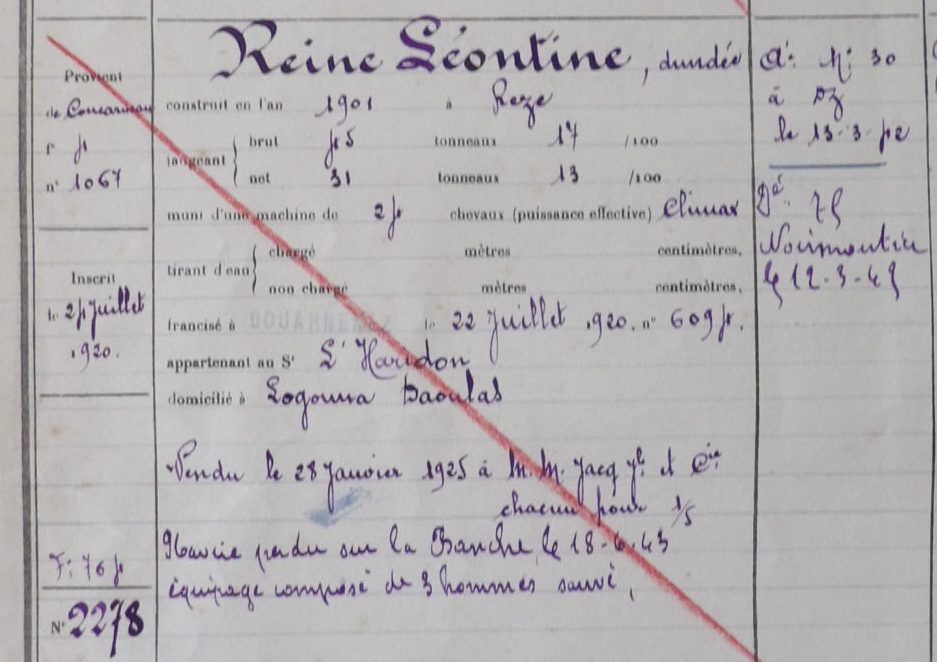 Reine Léontine, dundée
Provient
de Concarneau
f° 4
n° 1067
construit en l'an 1901 à Rezé
jaugeant
brut 45 tonneaux 17 /100
net 31 tonneaux 13 /100
muni d'une machine de 24 chevaux (puissance effective) Climax
tirant d'eau
chargé mètres centimètres.
non chargé mètres centimètres.
Inscrit
le 24 Juillet
1920.
francisé à DOUARNENEZ le 22 Juillet 1920. n° 6094.
appartenant au Sr L'Haridon
domicilié à Logonna Daoulas
Vendu le 28 Janvier 1925 à M.M. Jacq et Cie
chacun pour 1/5
Navire perdu sur la Banche le 18-6-43
équipage composé de 3 hommes sauvé,
F: 764
N° 2278
N: 30
à DZ
le 13-3-42
Noirmoutier
12-3-45